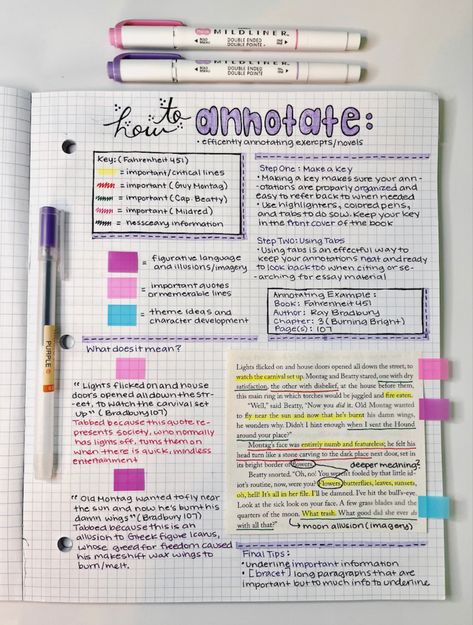 MILDLINER
DOUBLE ENDED
DOUBLE POINTE
MILDLINER
DOUBLE ENDED
DOUBLE POINTE
how to annotate:
• efficently annotating exercpts/novels
Key: (Fahrenheit 451)
= important/critical lines
= important (Guy Montag)
= important (Cap. Beatty)
= important (Mildred)
= nessceary information
= figurative language
and illusions/imagery
= important quotes
or memerable lines
= theme ideas and
character development
Step One: Make a Key
• Making a key makes sure your ann-
otations are properly organized and
easy to refer back to when needed
• Use highlighters, colored pens,
and tabs to do sow. Keep your key
in the front cover of the book
Step Two: Using Tabs
• Using tabs is an effectful way to
keep your annotations neat and ready
to look back too when citing or se-
arching for essay material
Annotating Example:
Book: Fahrenheit 451
Author: Ray Bradbury
Chapter: 3 (Burning Bright)
Page(s): 107
What does it mean?
"Lights flicked on and house
doors opened all down the str-
eet, to watch the carvival set
up" (Bradbury 107)
Tabbed because this quote re-
presents society, who normally
has lights off, turns them on
when there is quick, mindless
entertainment
"Old Montag wanted to fly near
the sun and now he's burnt his
damn wings" (Bradbury 107)
Tabbed because this is an
allusion to Greek figure Icarus,
whose greed for freedom caused
his makeshift wax wings to
burn/melt.
Lights flicked on and house doors opened all down the street, to
watch the carnival set up. Montag and Beatty stared, one with dry
satisfaction, the other with disbelief, at the house before them,
this main ring in which torches would be juggled and fire eaten.
"Well," said Beatty, "Now you did it. Old Montag wanted
to fly near the sun and now that he's burnt his damn wings,
he wonders why. Didn't I hint enough when I sent the Hound
around your place?"
Montag's face was entirely numb and featureless; he felt his
head turn like a stone carving to the dark place next door, set in
its bright border of flowers.
deeper meaning?
Beatty snorted. "Oh, no! You weren't fooled by that little id-
iot's routine, now, were you? Flowers, butterflies, leaves, sunsets,
oh, hell! It's all in her file. I'll be damned. I've hit the bull's-eye.
Look at the sick look on your face. A few grass blades and the
quarters of the moon. What trash. What good did she ever do
with all that?"
moon allusion (imagery)
Final Tips:
• underline important information
• [bracet] long paragraphs that are
important but to much info to underline
PURPLE